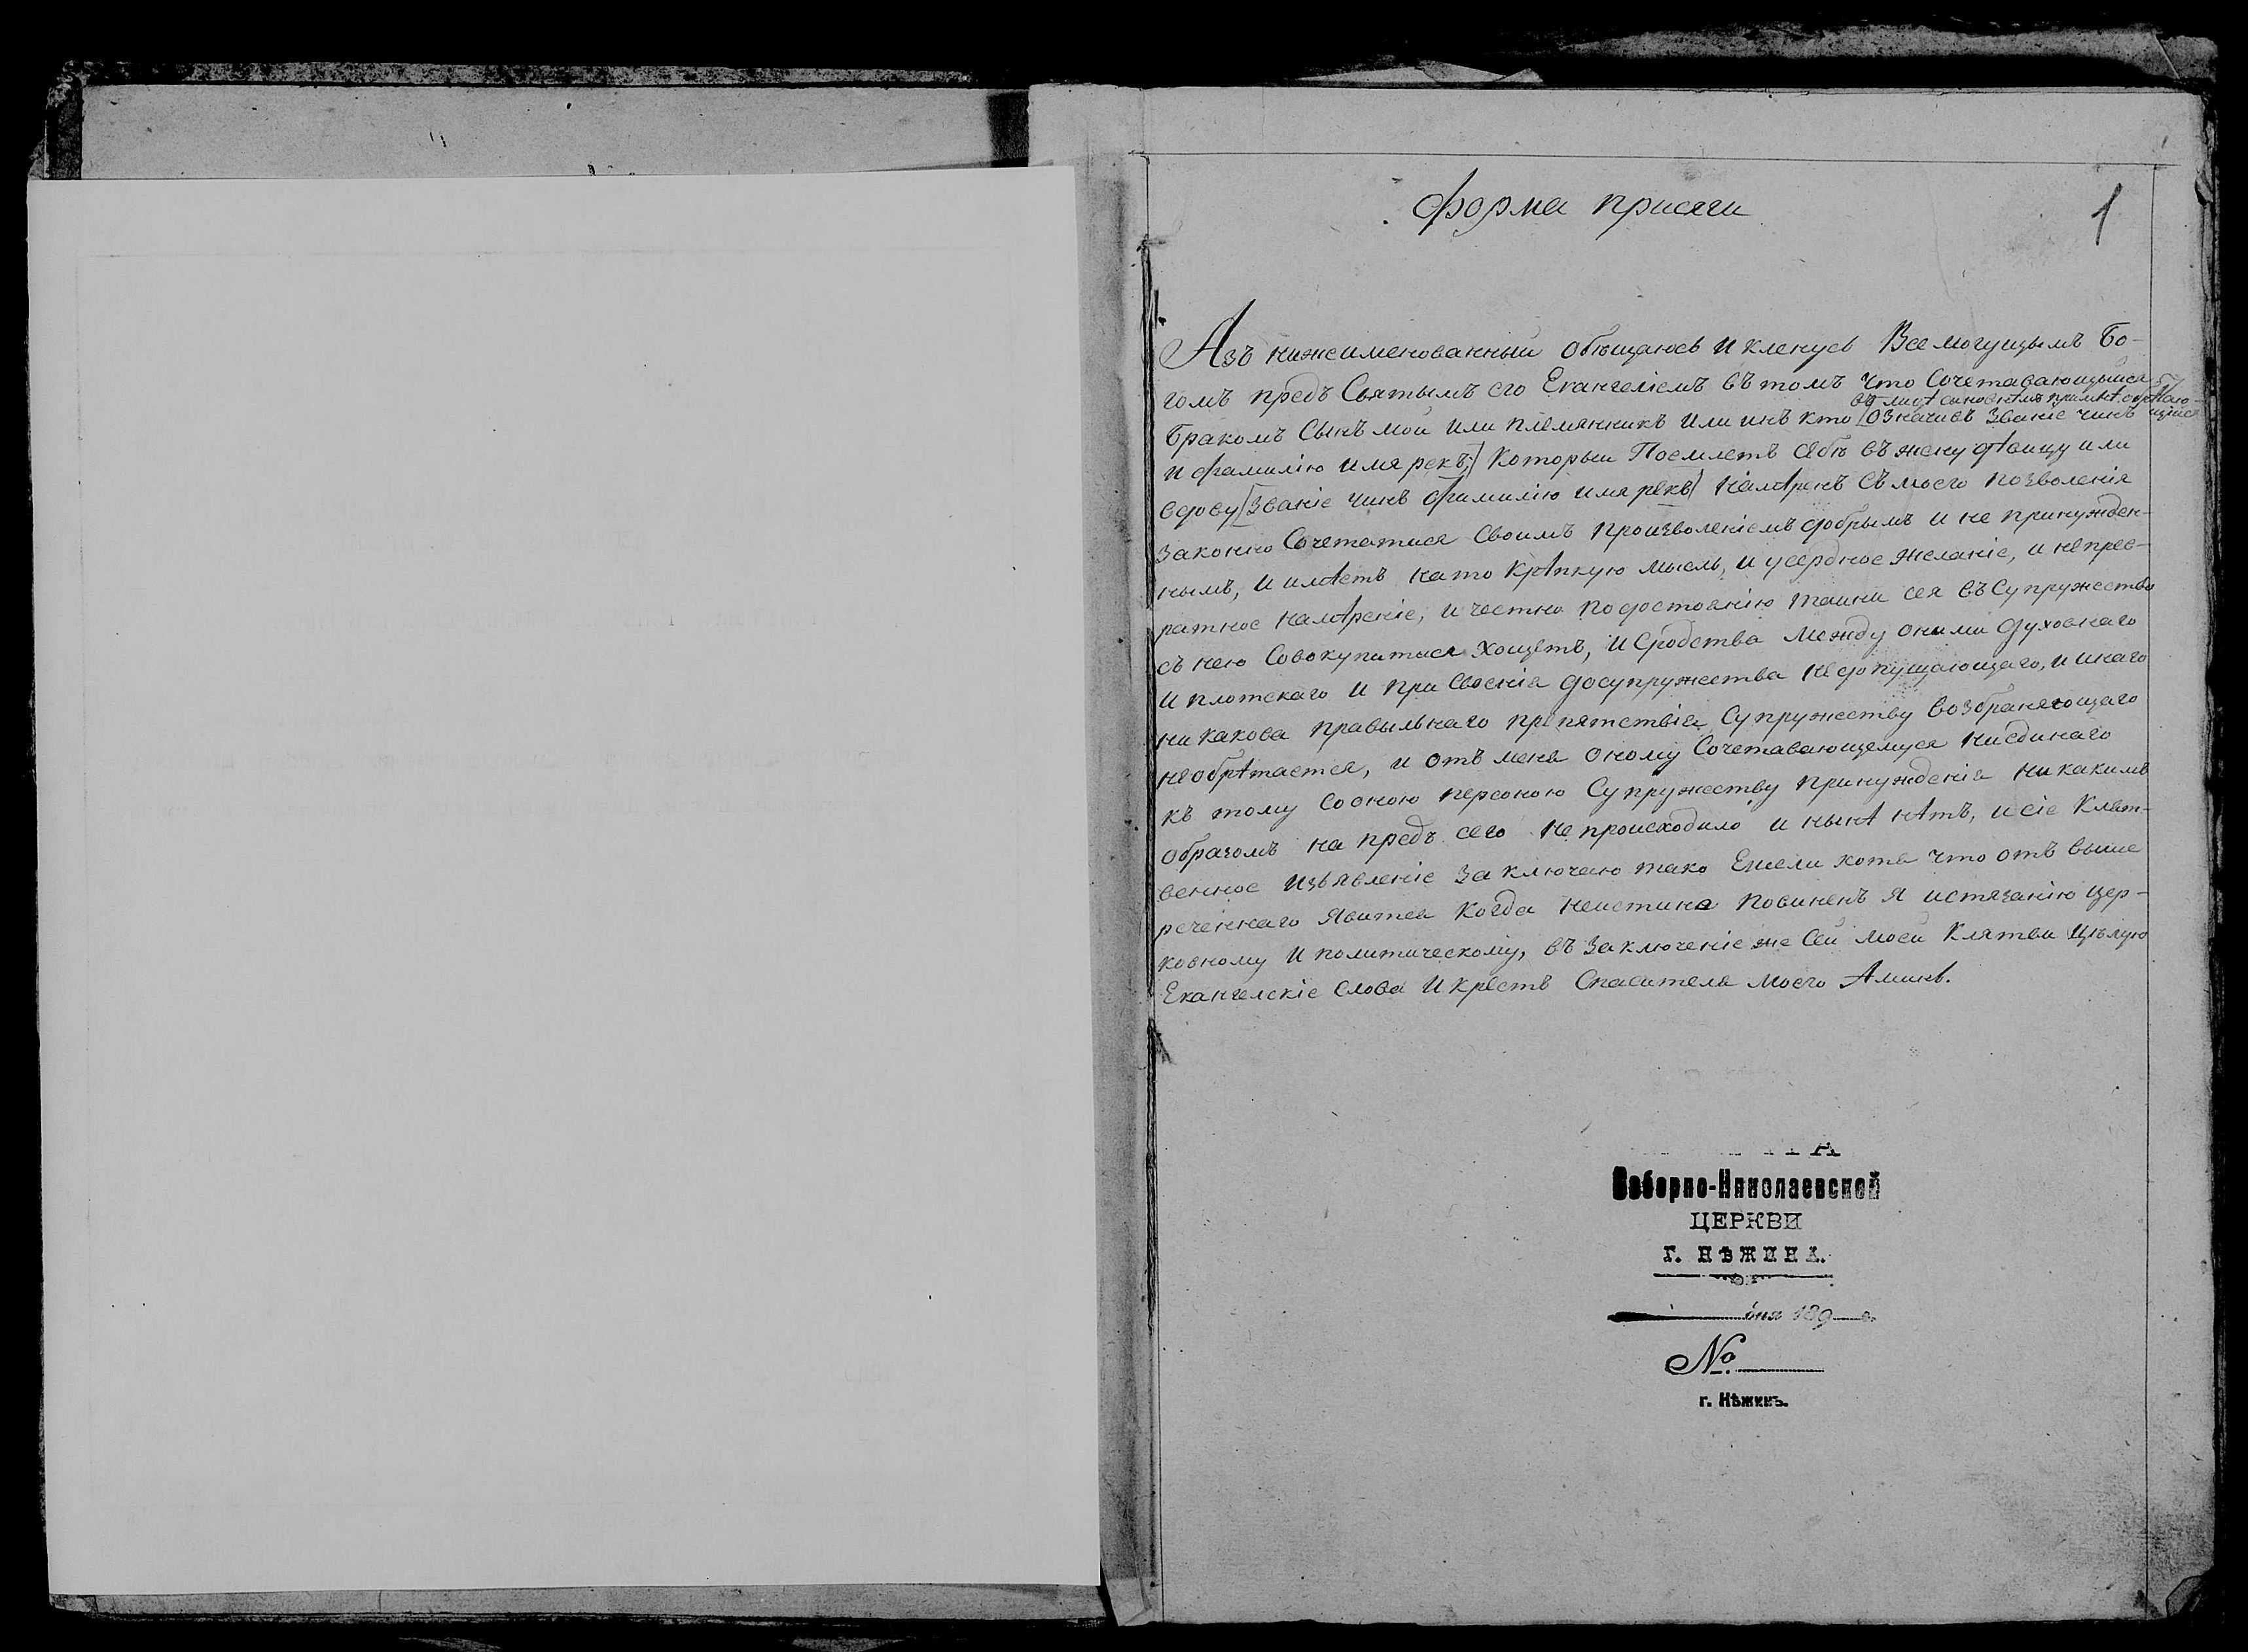 форма присяги
1
Азъ нижеименованный обѣщаюсь и кленусь Всемогущымъ Бо-
гомъ предъ Святымъ его Евангелiемъ въ томъ что Сочетавающыйся
бракомъ Сынъ мой или племянникъ или инъ кто (означивъ званiе чинъ
и фамилiю имя рекъ;) который Поемлетъ себѣ въ жену дѣвицу или
вдову (званiе чинъ фамилiю имя рекъ) намѣренъ съ моего позволенiя
законно Сочетатися своимъ произволенiемъ добрымъ и не принужден-
нымъ, и имѣетъ на то крѣпкую мысль, и усердное желанiе, и непрев-
ратное намѣренiе, и честно по достоянiю таини сея въ Супружество
съ нею Совокупитися хощетъ, и Сродства между оными духовнаго
и плотскаго и присвоенiя до супружества недопущающаго, и инаго
ни какова правыльнаго препятствiя Супружеству возбраняющаго
необрѣтается, и отъ мене оному Сочетавающемуся ниединаго
къ тому со оною персоною Супружеству принужденiя ни какимъ
образомъ на предъ сего не происходило и нынѣ нѣтъ, и сiе Клят-
венное изъявленiе заключаю тако Ежели хотя что отъ выше
реченнаго явится когда неистина повиненъ я истязанiю цер-
ковному и политическому, въ заключенiе же Сей моей Клятви цѣлую
Евангелскiе слова и крестъ Спасителя моего Аминь.
Соборно-Николаевской
ЦЕРКВИ
Г. НѢЖИНА.
дня 189 г.
№
г. Нѣжинъ.